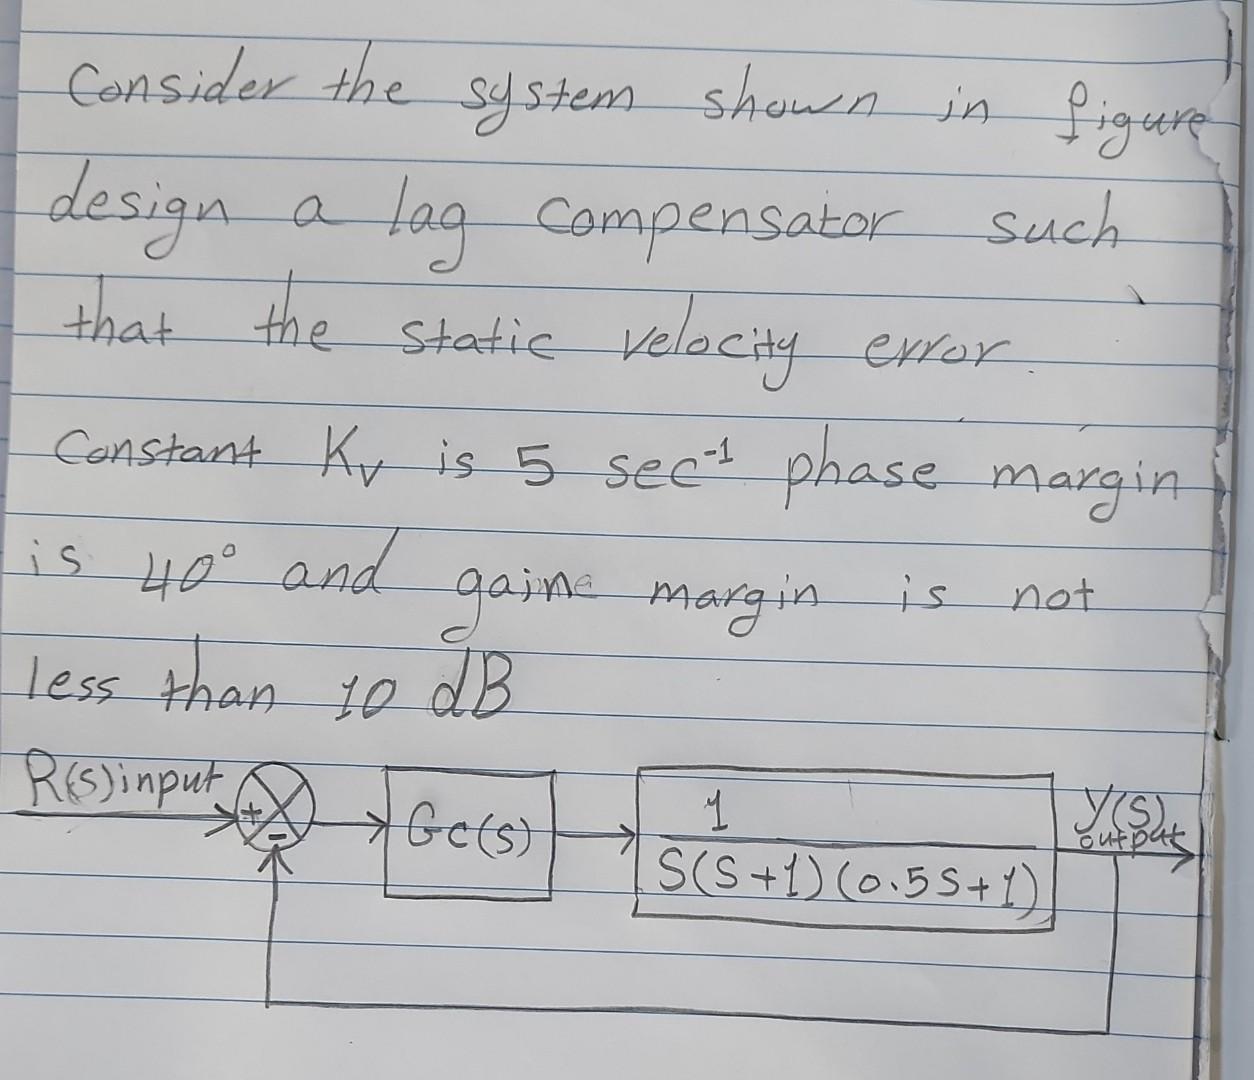 Consider the system shown in figure
design a lag compensator such
that the static velocity error.
Constant Kv is 5 sec⁻¹ phase margin
is 40° and gaine margin is not
less than 10 dB
R(s) input
+
-
Gc(s)
1
S(S+1)(0.5S+1)
Y(S)
output